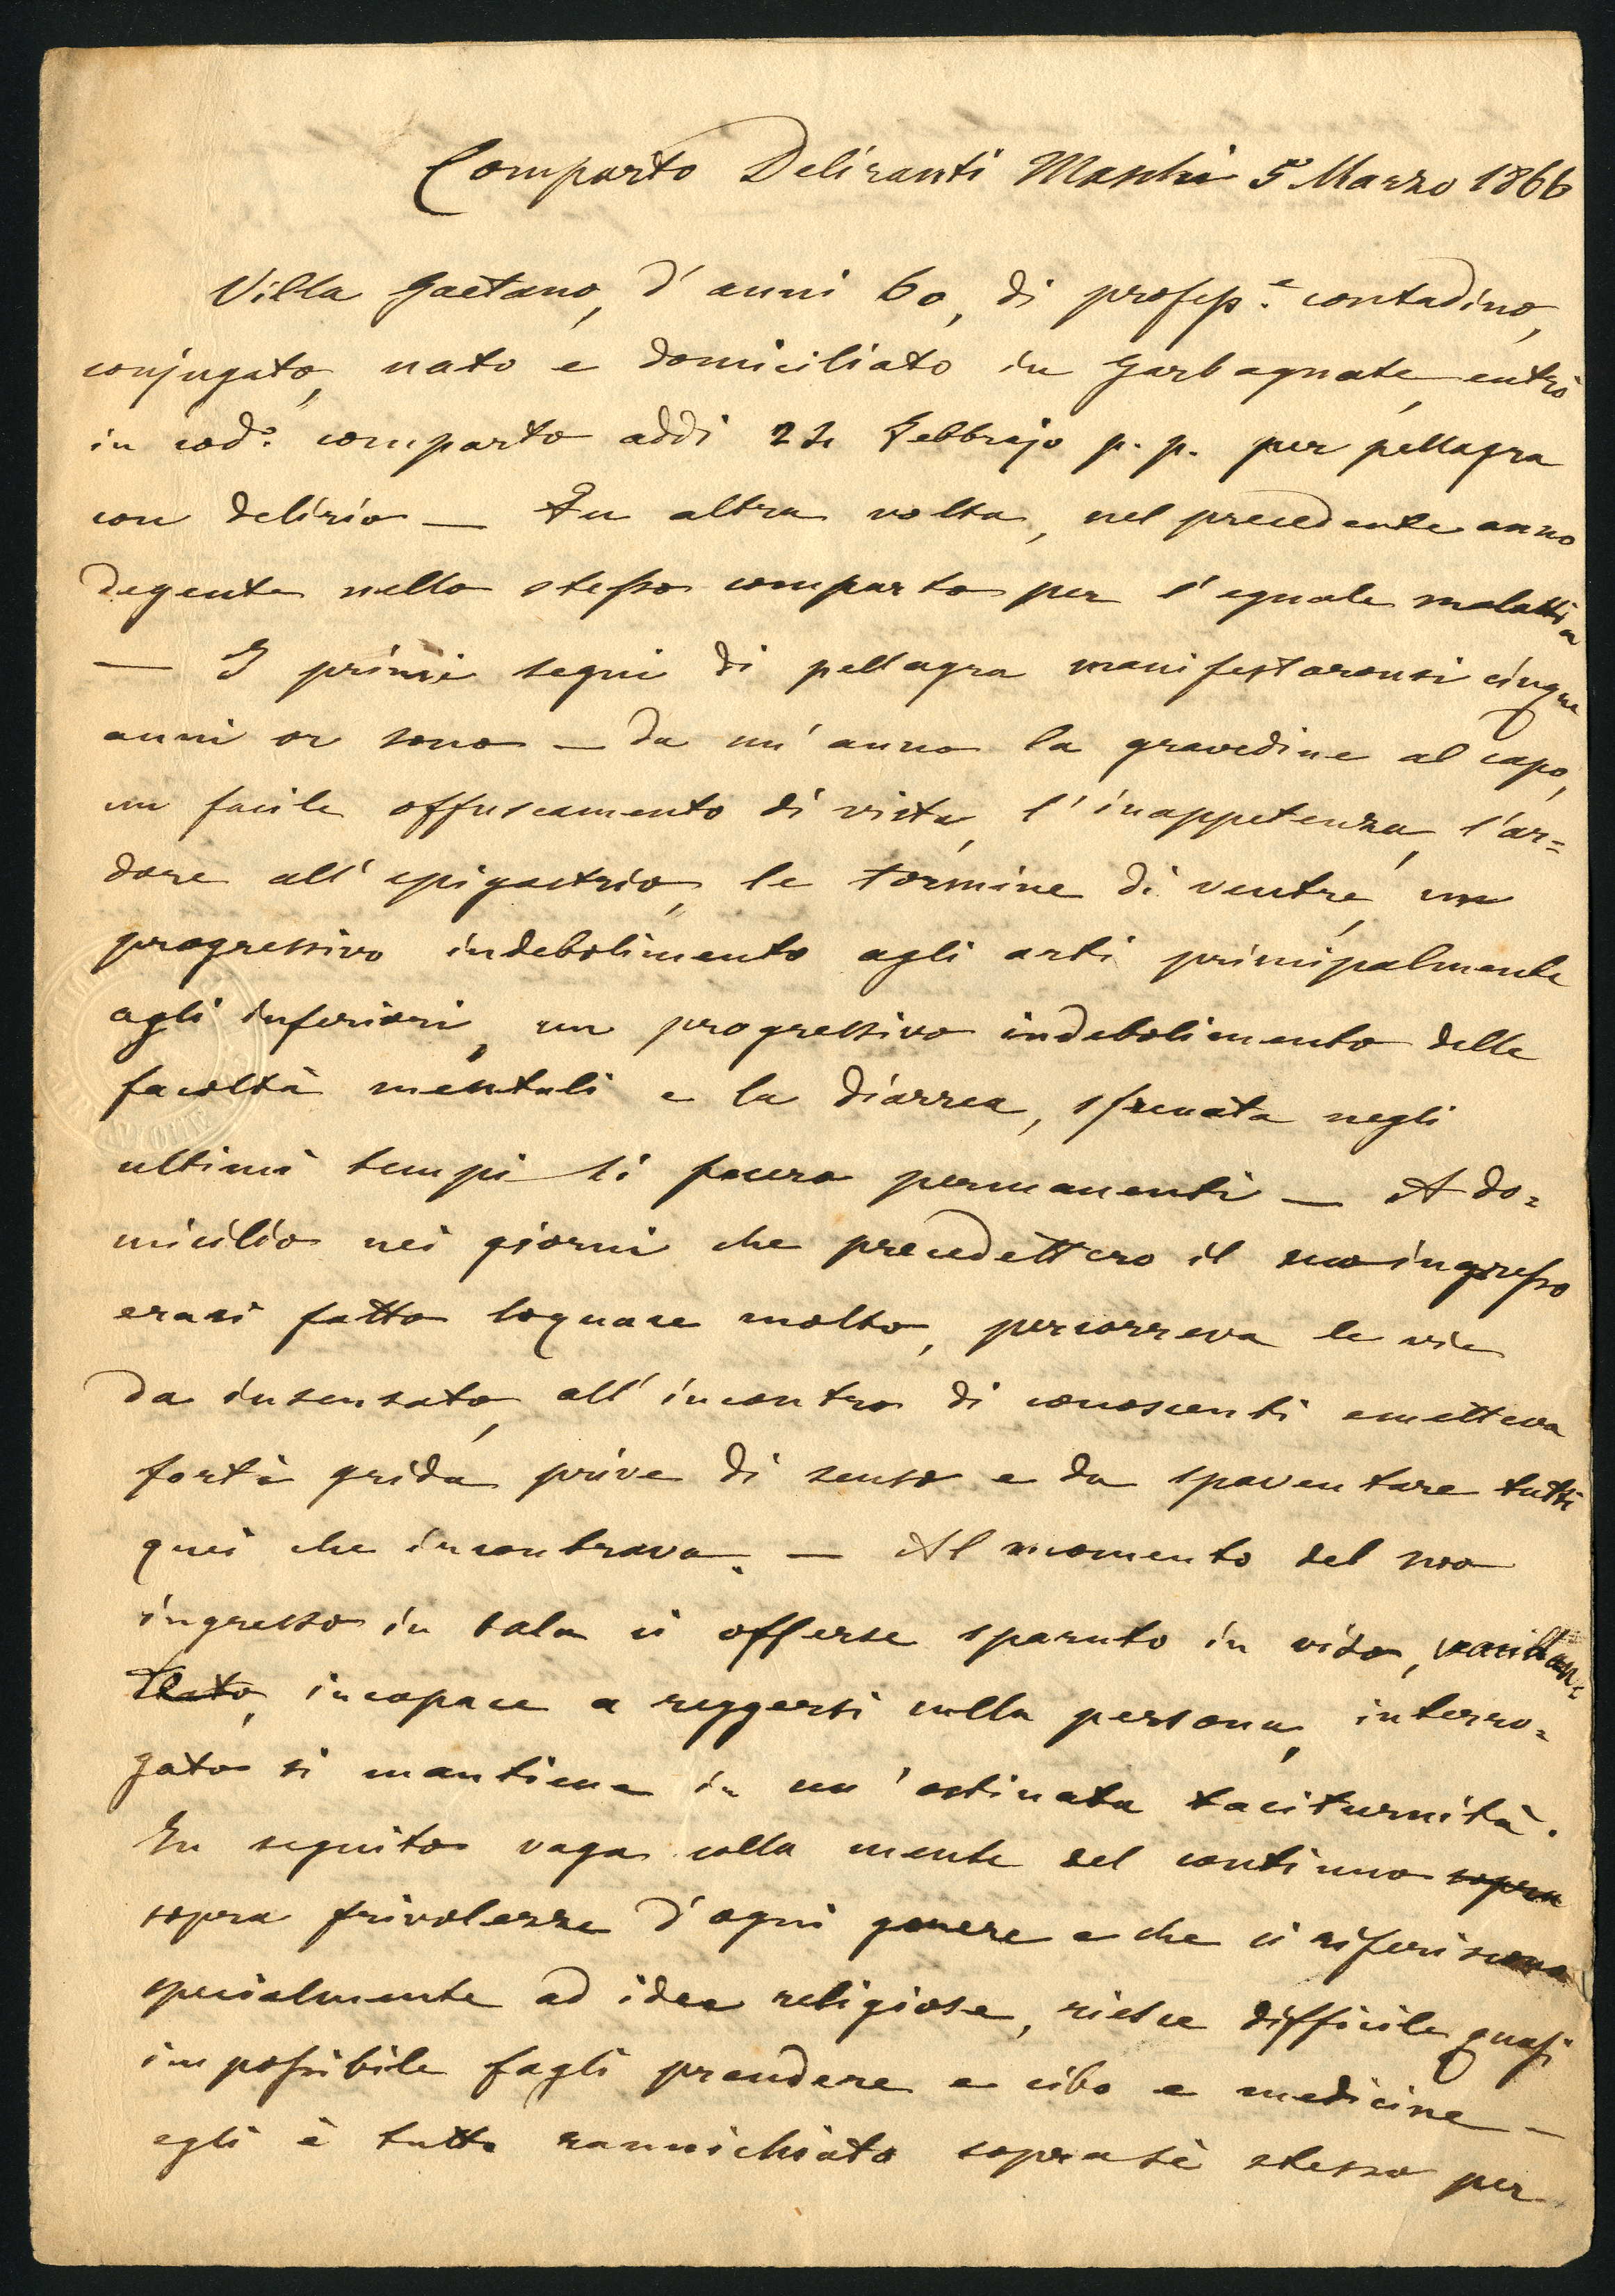 Comparto Deliranti Maschi 5 Marzo 1866
Villa Gaetano, d'anni 60, di profess.e contadino,
conjugato, nato e domiciliato in Garbagnate, entrò
in cod.o comparto addì 24 Febbrajo p. p. per pellagra
con delirio — Fu altra volta, nel precedente anno
degente nello stesso comparto per l'eguale malattia
— I primi segni di pellagra manifestaronsi cinque
anni or sono — da un'anno la gravedine al capo,
un facile offuscamento di vista, l'inappetenza, l'ar=
dore all'epigastrio, le tormine di ventre, un
progressivo indebolimento agli arti principalmente
agli inferiori, un progressivo indebolimento delle
facoltà mentali e la diarrea, sfrenata negli
ultimi tempi si fecero permanenti — A do=
micilio nei giorni che precedettero il suo ingresso
erasi fatto loquace molto, percorreva le vie
da insensato, all'incontro di conoscenti emetteva
forti grida prive di senso e da spaventare tutti
quei che incontrava. — Al momento del suo
ingresso in sala ci offerse sparuto in viso, vacillan=
te, incapace a reggersi sulla persona, interro=
gato si mantiene in un'ostinata taciturnità.
In seguito vaga colla mente del continuo sopra
sopra frivolezze d'ogni genere e che si riferiscono
specialmente ad idee religiose, riesce difficile quasi
impossibile fagli prendere e cibo e medicine —
egli è tutto rannichiato sopra sè stesso per